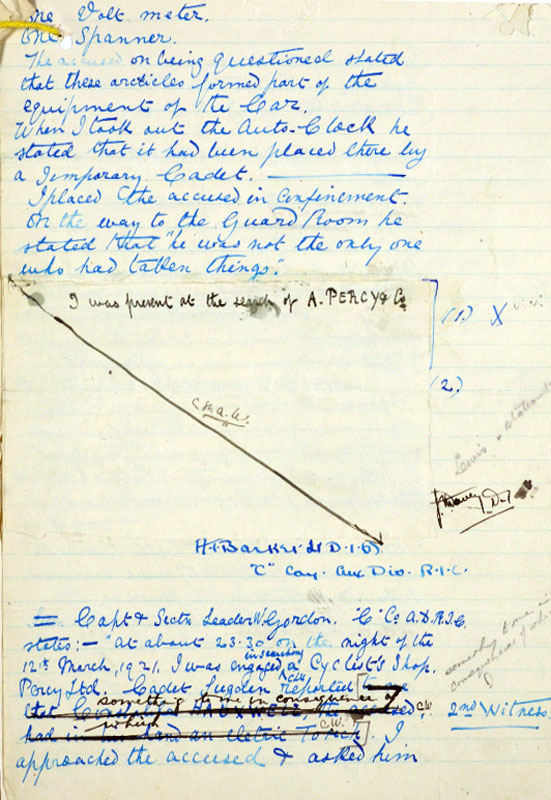 One Volt meter.
One Spanner.
The accused on being questioned stated
that these articles formed part of the
equipment of the Car.
When I took out the Auto-Clock he
stated that it had been placed there by
a Temporary Cadet.
I placed the accused in confinement.
On the way to the Guard Room he
stated that "he was not the only one
who had taken things".
I was present at the search of A. PERCY & Co
(1) X
(2)
Lewis
H. Barker
"C" Coy. Aux Div. R.I.C.
Capt & Sectn Leader W. Gordon. "C" Co A.D.R.I.C.
states:— "At about 23.30 on the night of the
in searching
12th March, 1921, I was engaged a Cyclist's Shop.
C.W.
Percy Ltd. Cadet Sugden reported to me
something done in consequence of
that the accused, C.W.
which
had in his hand an eletric Torch. C.W. I
2nd Witness.
approached the accused & asked him
something done in
consequence of